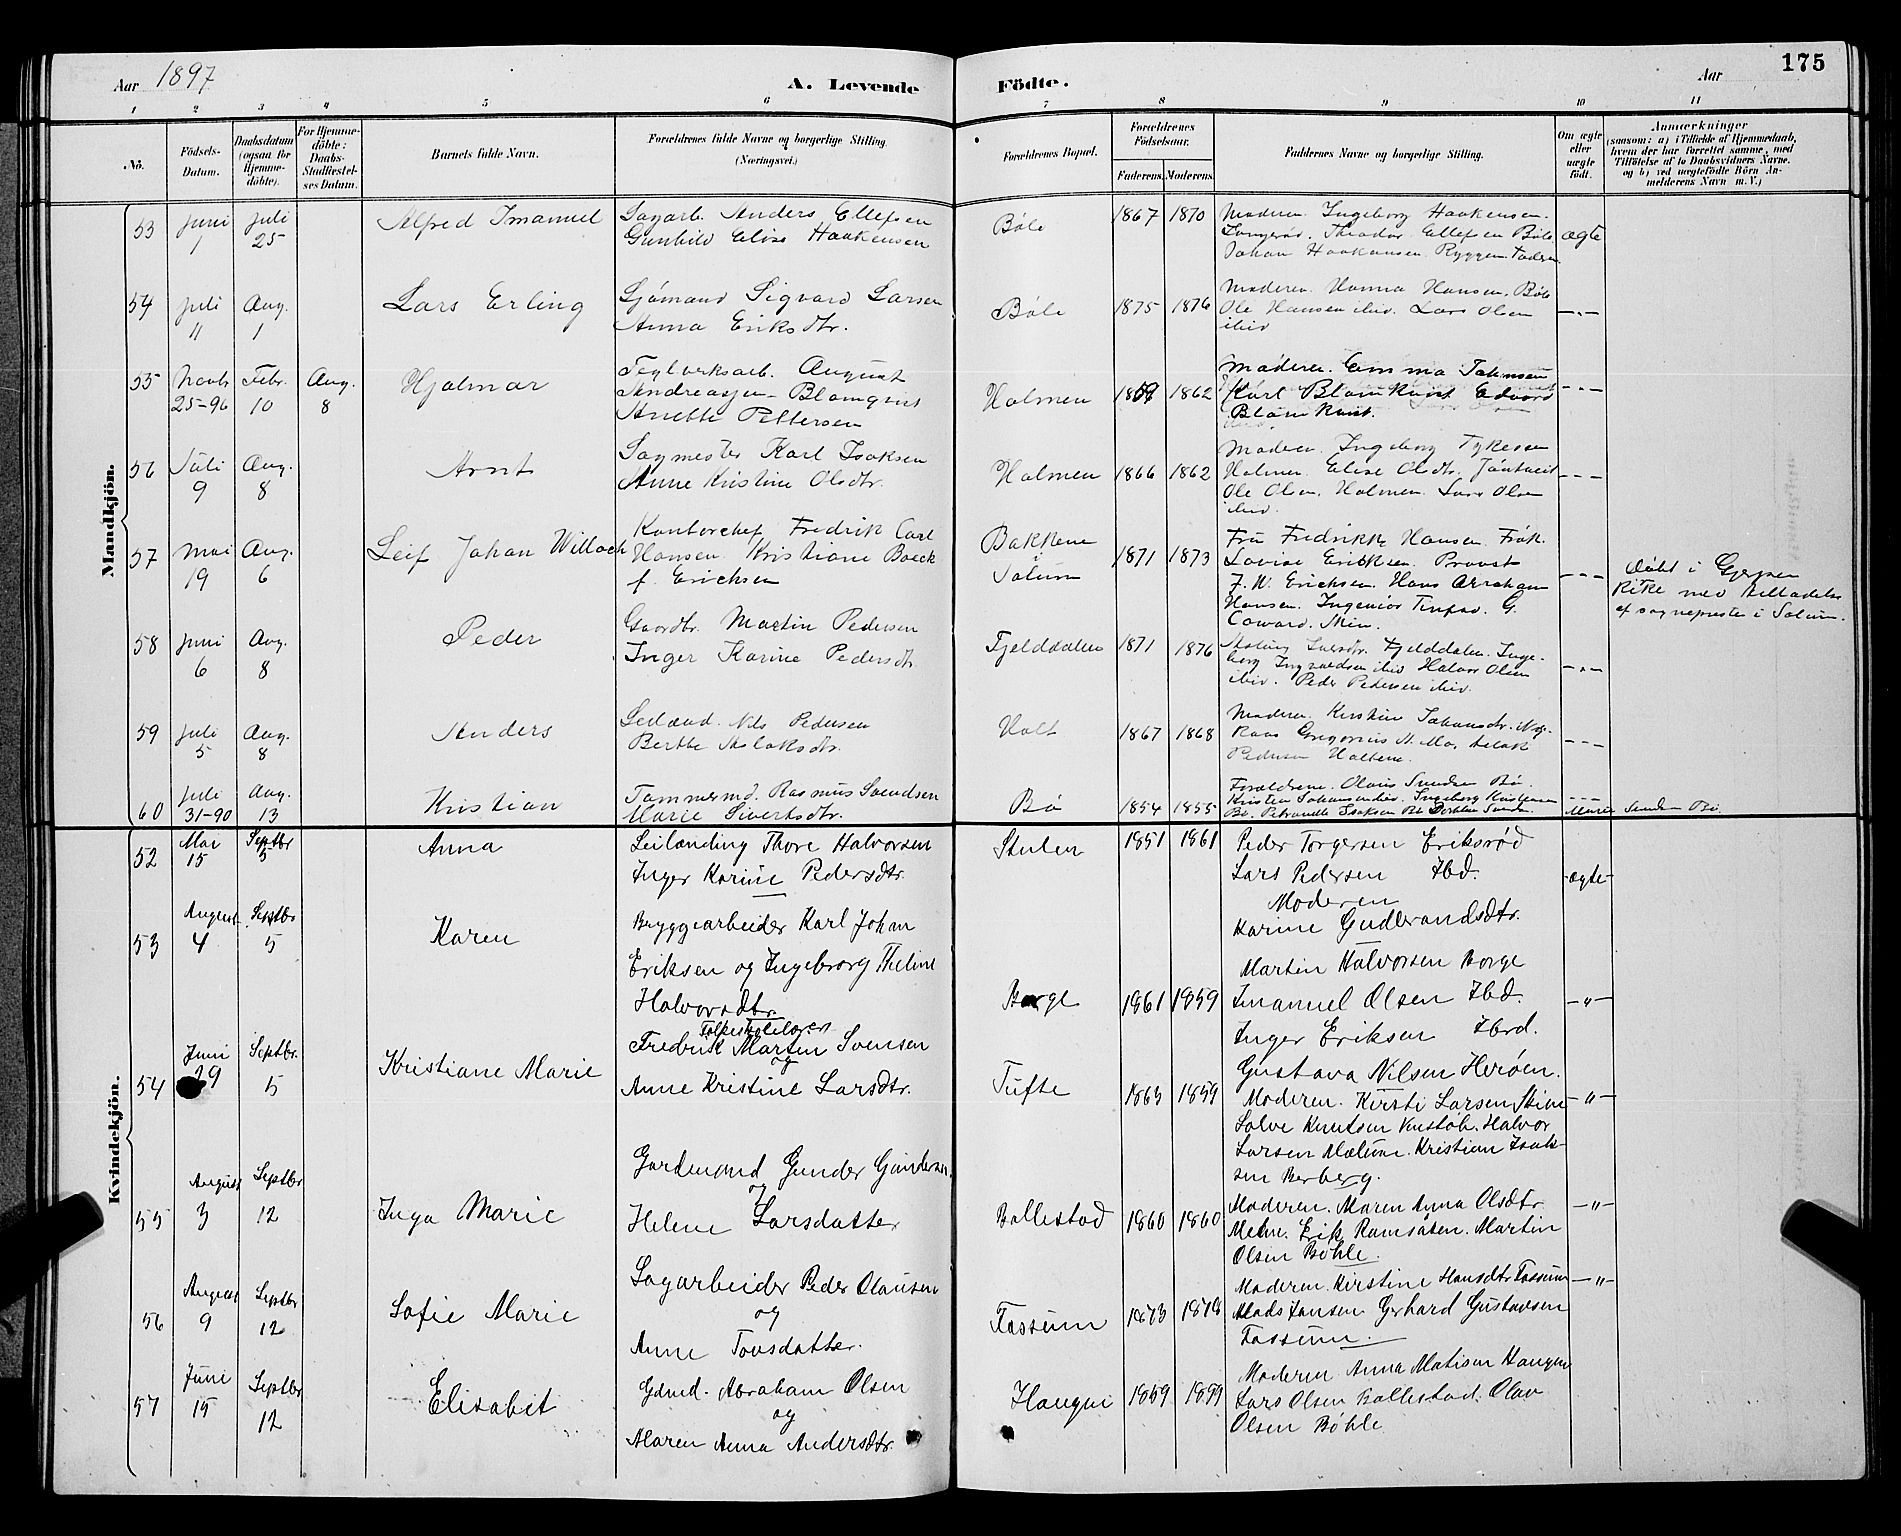 Aar 1897
A. Levende
Födte.
Aar
175
1 2 3 4 5 6 7 8 9 10 11
No.
Födsels-Datum.
Daabsdatum (ogsaa for Hjemme-döbte).
For Hjemme-döbte: Daabs-Stadfæstel-ses Datum.
Barnets fulde Navn.
Forældrenes fulde Navne og borgerlige Stilling. (Næringsvei.)
Forældrenes Bopæl.
Forældrenes Födselsaar.
Faderens. Moderens.
Faddernes Navne og borgerlige Stilling.
Om ægte eller uægte födt.
Anmærkninger
(saasom: a) i Tilfælde af Hjemmedaab,
hvem der har forrettet samme, med
Tilföielse af to Daabsvidners Navne,
og b) ved uægtefödte Börn An-
melderens Navn m. V.)
Mandkjön.
53 Juni 1 Juli 25 Alfred Imanuel
Sagarb. Anders Ellefsen
Gunhild Elise Haakensen
Bøle 1867 1870
Moderen. Ingeborg Haakensen.
Theodor Ellefsen Bøle
Johan Haakensen Ryggen. Faderen
ægte
54 Juli 11 Aug. 1 Lars Erling
Sjómand Sigvard Larsen
Anna Eriksdtr.
Bóle 1875 1876
Moderen. Hanna Hansen. Bøle
Ole Hansen ibid. Lars Olsen
ibid
55 Novb. 25-96 Febr. 10 Aug. 8 Hjalmar
Teglverksarb. August
Andreassen Blomqvist
Anette Pettersen
Holmen 1862
Moderen. Emma Johansen
Karl Blomkvist Edvard
Blomkvist.
56 Juli 9 Aug. 8 Arnt
Sagmester Karl Isaksen
Anne Kristine Olsdtr.
Holmen 1866 1862
Moderen. Ingeborg
Holmen. Elise Olsdtr.
Ole Olsen. Holmen. Lars Olsen
ibid.
57 Mai 19 Aug. 6 Leif Johan Willoch
Kontorchef Fredrik Carl
Hansen. Kristiane Boeck
f. Erichsen
Bakkene
Solum
1871 1873
Fru Fredrikke Hansen. Frøk.
Lovise Ericksen. Provst
J. W. Erichsen. Hans Abraham
Hansen. Ingeniør G.
Coward.
Døbt i Gjerpen
Kirke med tilladelse
af sognepresten i Solum.
58 Juni 6 Aug. 8 Peder
Gaardbr. Martin Pedersen
Inger Karine Pedersdtr.
Fjelddalen 1871 1876
Fjelddalen. Inge-
borg Ingvaldsen ibid Halvor Olsen
ibid. Peder Pedersen ibid.
59 Juli 5 Aug. 8 Anders
Leilænd. Nils Pedersen
Berthe Aslaksdtr.
Holt 1867 1868
Moderen. Kirstine Johansdtr.
Gregorius Aslak
Pedersen Holtene.
60 Juli 31-90 Aug. 13 Kristian
Tømmermd. Rasmus Svendsen
Marie Sivertsdtr.
Bø 1854 1855
Forældrene. Olavis Svendsen Bø.
Kristen Johansen ibid. Ingeborg Kristensen
Bø. Petronelle Isaksen Bø
Marie Svendsen Bø.
Kvindekjön.
52 Mai 15 Septbr 5 Anna
Leilænding Thore Halvorsen
Inger Karine Pedersdtr.
Stulen 1851 1861
Peder Torgersen Eriksrød
Lars Pedersen Ibd.
Moderen
Karine Gudbrandsdtr.
ægte
53 August 4 Septbr 5 Karen
Bryggearbeider Karl Johan
Eriksen og Ingeborg Theline
Halvorsdtr.
Borge 1861 1859
Martin Halvorsen Borge
Imanuel Olsen Ibd.
Inger Eriksen Ibd.
Gustava Nilsen Herøen.
54 Juni 29 Septbr. 5 Kristiane Marie
Folkeskolelærer
Fredrik Martin Svensen
og
Anne Kristine Larsdtr.
Tufte 1863 1859
Moderen. Kirsti Larsen
Solve Knutsen Halvor
Larsen Mælum. Kristian Isak-
sen Berberg.
55 August 3 Septbr 12 Inga Marie
Gardmand Gunder Gundersen
og
Helene Larsdatter
Ballestad 1860 1860
Moderen. Maren Anna Olsdtr
Erik Ramsaasen. Martin
Olsen Bøhle.
56 August 9 Septbr 12 Sofie Marie
Sagarbeider Peder Olausen
og
Anne Tovsdatter.
Fossum 1873 1878
Moderen. Kirstine Hansdtr Fossum
Mads Jansen Gerhard Gustavsen
Fossum.
57 Juni 15 Septbr 12 Elisabet
Gdmd. Abraham Olsen
og
Maren Anna Andersdtr.
Haugen 1859 1859
Moderen Anna Matisen Haugen
Lars Olsen Ballestad. Olav
Olsen Bøhle